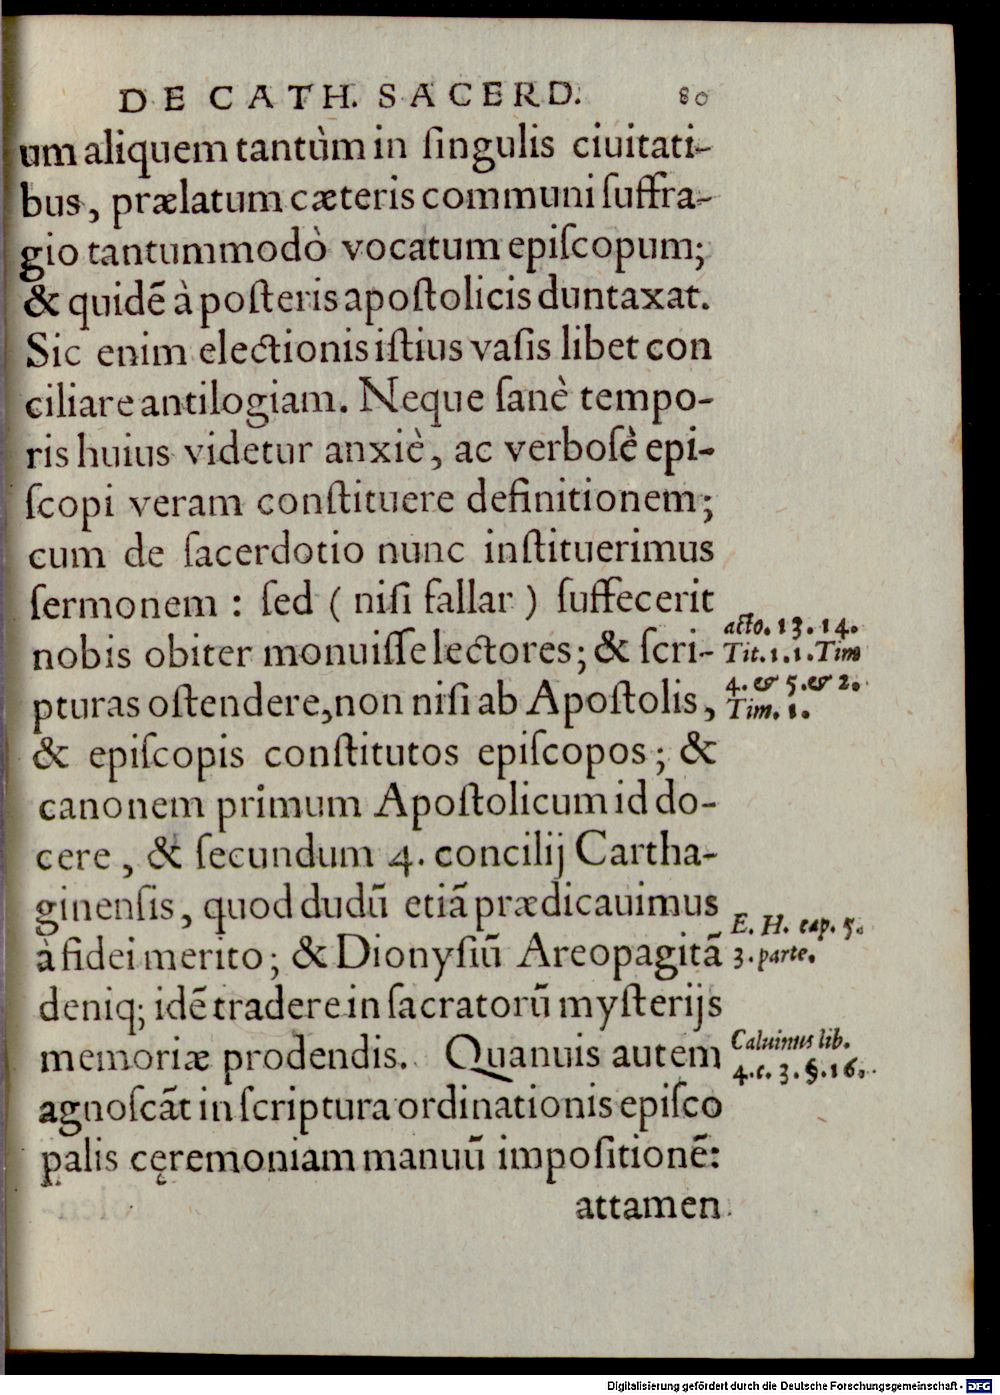 DE CATH. SACERD. 80
um aliquem tantùm in ſingulis ciuitati-
bus, prælatum cæteris communi ſuffra-
gio tantummodò vocatum epiſcopum;
& quidē à poſteris apoſtolicis duntaxat.
Sic enim electionis iſtius vaſis libet con
ciliare antilogiam. Neque ſanè tempo-
ris huius videtur anxiè, ac verboſè epi-
ſcopi veram conſtituere definitionem;
cum de ſacerdotio nunc inſtituerimus
ſermonem : ſed ( niſi fallar ) ſuffecerit
nobis obiter monuiſſe lectores; & ſcri-
pturas oſtendere,non niſi ab Apoſtolis,
& epiſcopis conſtitutos epiſcopos; &
canonem primum Apoſtolicum id do-
cere, & ſecundum 4. concilij Cartha-
ginenſis, quod dudū etiā prædicauimus
à fidei merito; & Dionyſiū Areopagitā
deniq; idē tradere in ſacratorū myſterijs
memoriæ prodendis. Quanuis autem
agnoſcāt in ſcriptura ordinationis epiſco
palis cęremoniam manuū impoſitionē:
attamen
acto. 13. 14.
Tit. 1. 1. Tim
4. & 5. & 2.
Tim. 1.
E. H. cap. 5.
3. parte.
Caluinus lib.
4. c. 3. §. 16.
Digitalisierung gefördert durch die Deutsche Forschungsgemeinschaft - DFG